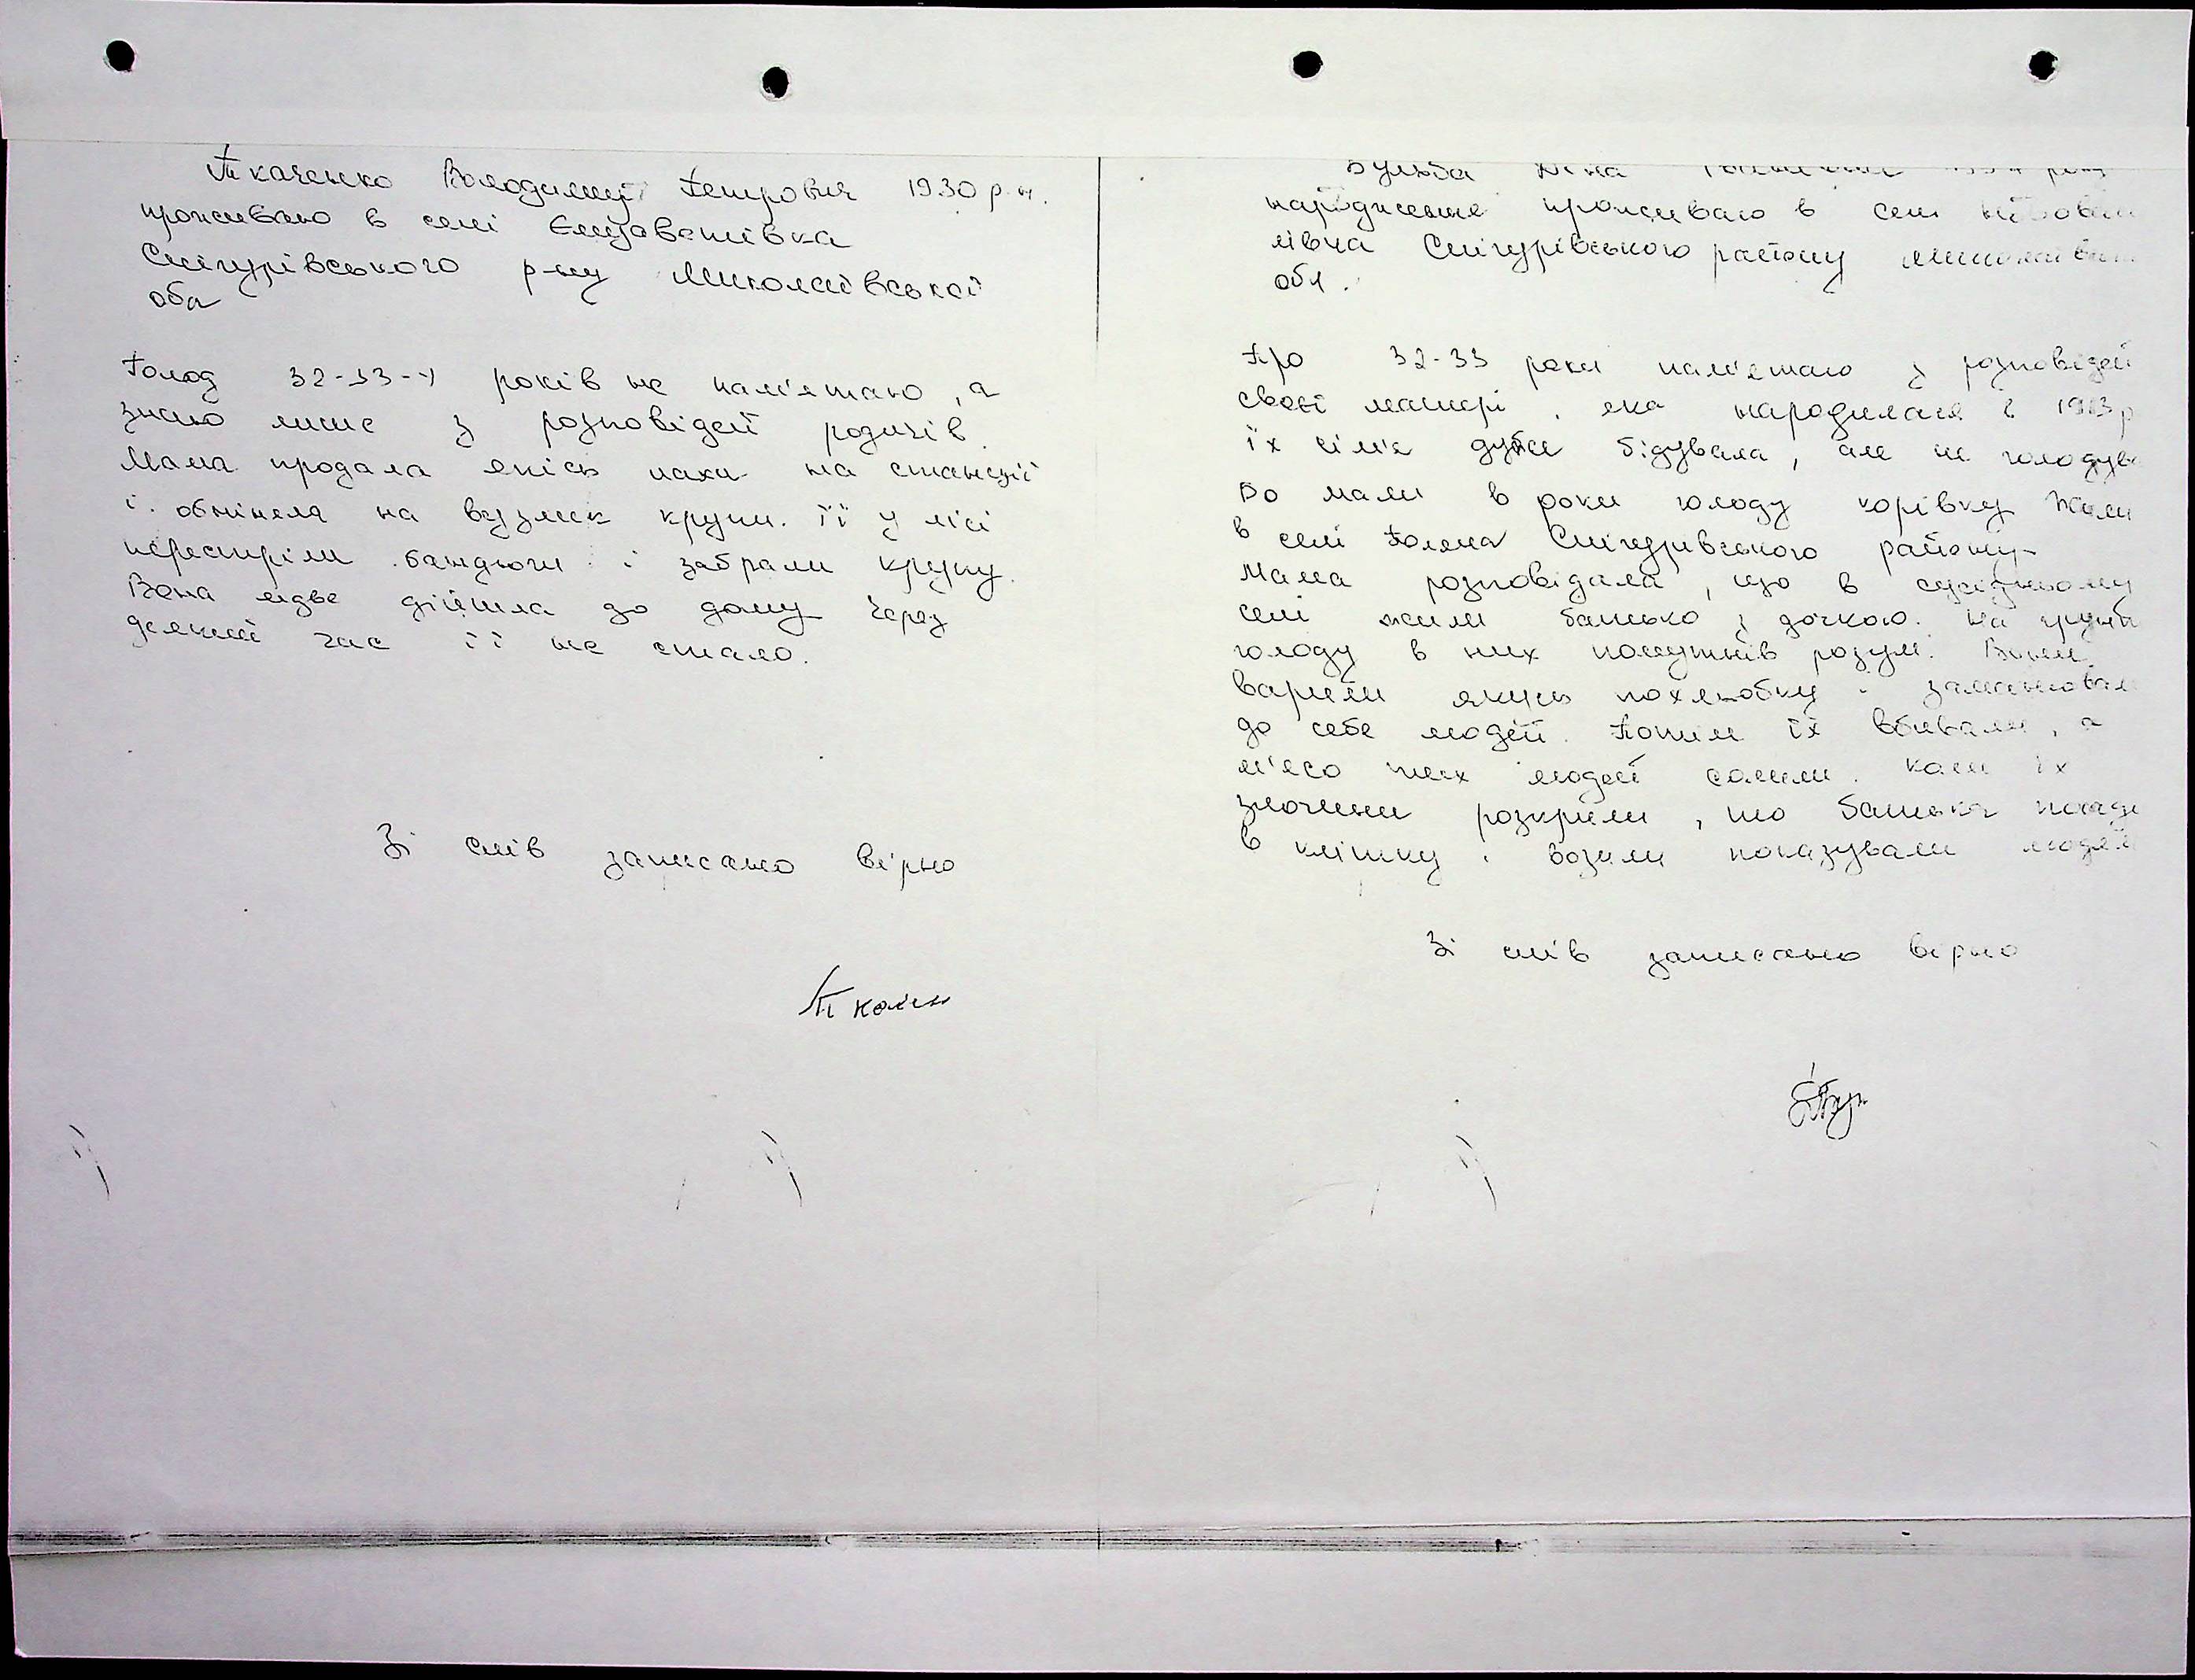 Ткаченко Володимир Петрович 1930 р.н.
проживаю в селі Єлизаветівка
Снігурівського р-ну Миколаївської
обл
Голод 32-33-х років не пам'ятаю, а
знаю лише з розповідей родичів.
Мама продала якісь пахи на станції
і обміняла на вузлик крупи. Її у лісі
перестріли бандюги і забрали крупу.
Вона ледве дійшла до дому через
деякий час її не стало.
Зі слів записано вірно
Ткачен
Бульба року
народження проживаю в селі
лівка Снігурівського району
обл.
Про 32-33 роки пам'ятаю з розповідей
своєї матері, яка народилася в 1913р
їх сім'я дуже бідувала, але не голодув
Бо мали в роки голоду корівку Жили
в селі Поляна Снігурівського району
Мама розповідала, що в сусідньому
селі жили батько з дочкою. На ґрунті
голоду в них помутнів розум. Вони
варили якусь похльобку і заманювали
до себе людей. Потім їх вбивали, а
м'ясо тих людей солили. Коли їх
злочини розкрили, то батька посади
в клітку і возили показували людям
Зі слів записано вірно